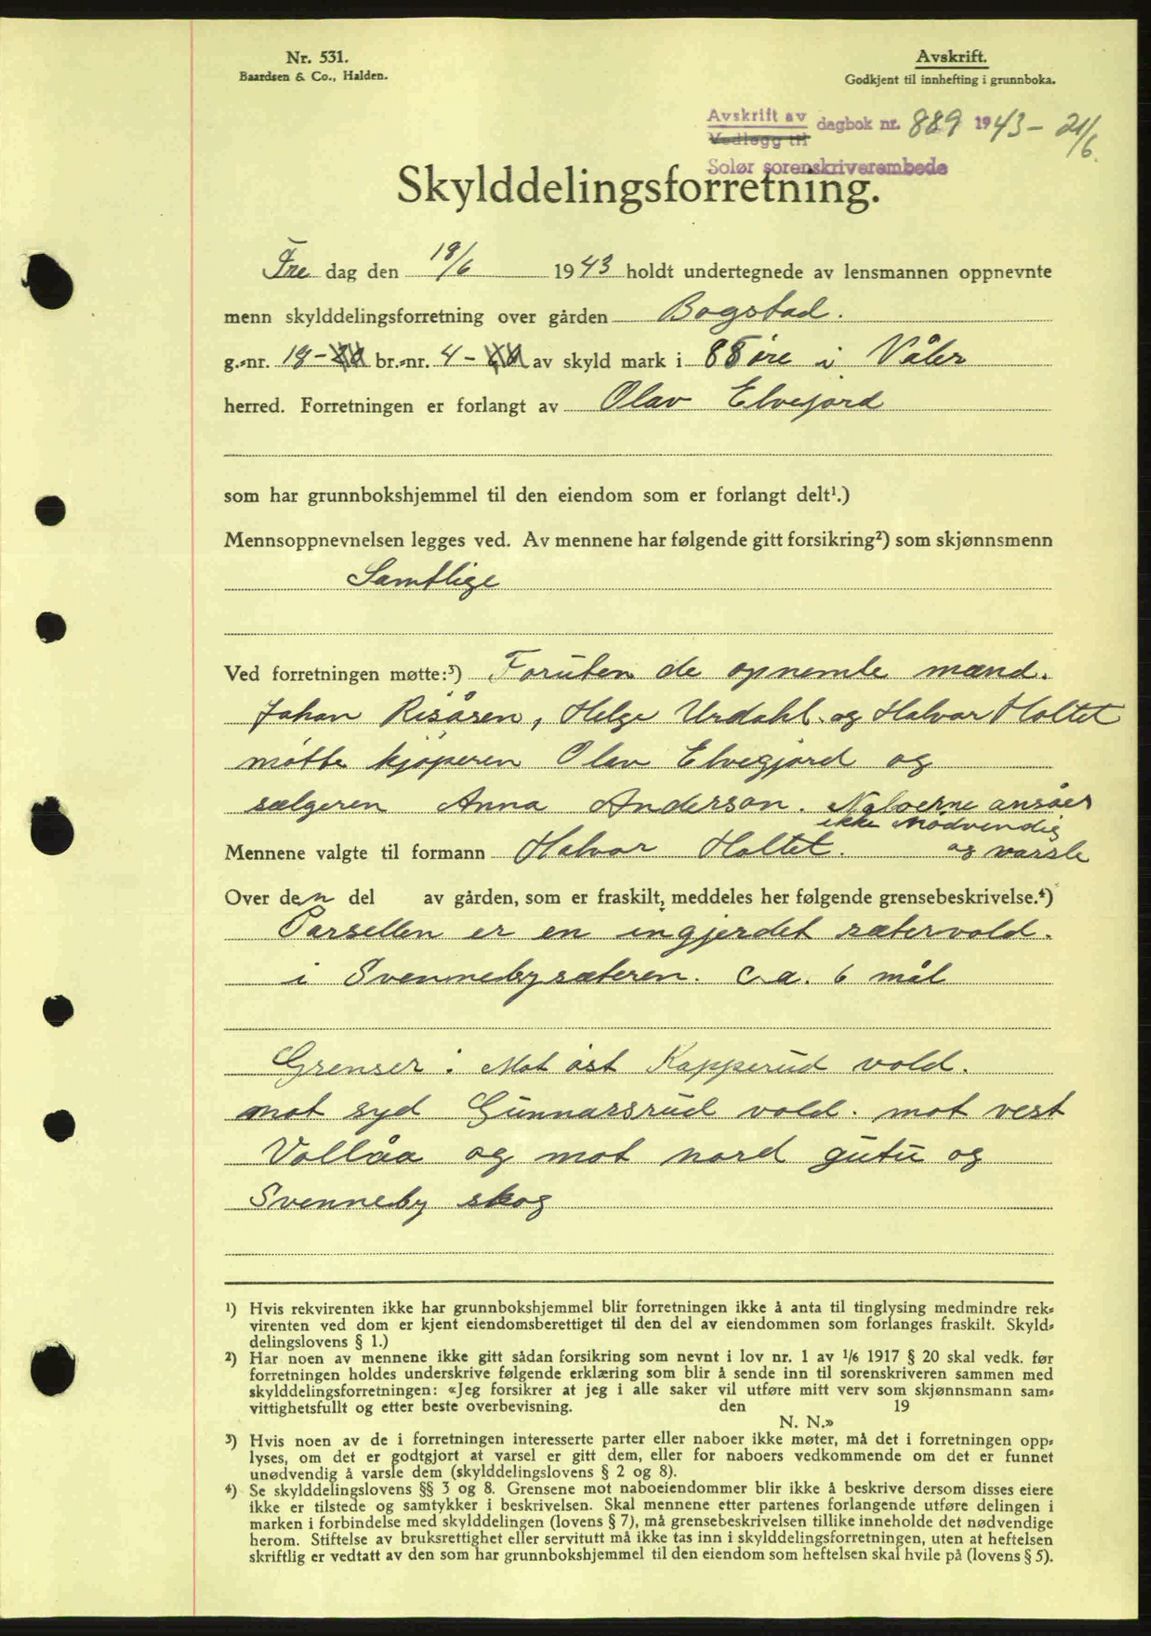 Nr. 531.
Baardsen & Co., Halden.
Avskrift.
Godkjent til innhefting i grunnboka.
Avskrift av
Vedlegg til
dagbok nr. 889 1943 - 21/6.
Solør sorenskriverembede
Skylddelingsforretning.
Fre dag den 18/6 1943 holdt undertegnede av lensmannen oppnevnte
menn skylddelingsforretning over gården Bogstad.
g.-nr. 19 - br.-nr. 4 - av skyld mark i 88 øre i Våler
herred. Forretningen er forlangt av Olav Elvejord
som har grunnbokshjemmel til den eiendom som er forlangt delt¹.)
Mennsoppnevnelsen legges ved. Av mennene har følgende gitt forsikring²) som skjønnsmenn
Samtlige
Ved forretningen møtte:³) Foruten de opnemte mænd.
Johan Risåsen, Helge Urdahl. og Halvor Holtet
møtte kjøperen Olav Elvegjord og
sælgeren Anna Anderson. Naboerne ansåes
ikke nødvendig
Mennene valgte til formann Halvor Holtet. og varsle
Over den del av gården, som er fraskilt, meddeles her følgende grensebeskrivelse.⁴)
Parsellen er en ingjerdet sætervold.
i Svennebysæteren. ca. 6 mål
Grenser: Mot øst Kapperud vold.
mot syd Gunnarsrud vold. mot vest
Vollåa og mot nord gutu og
Svenneby skog
¹) Hvis rekvirenten ikke har grunnbokshjemmel blir forretningen ikke å anta til tinglysing medmindre rek-
virenten ved dom er kjent eiendomsberettiget til den del av eiendommen som forlanges fraskilt. Skyld-
delingslovens § 1.)
²) Har noen av mennene ikke gitt sådan forsikring som nevnt i lov nr. 1 av 1/6 1917 § 20 skal vedk. før
forretningen holdes underskrive følgende erklæring som blir å sende inn til sorenskriveren sammen med
skylddelingsforretningen: «Jeg forsikrer at jeg i alle saker vil utføre mitt verv som skjønnsmann sam-
vittighetsfullt og etter beste overbevisning. den 19
N. N.»
³) Hvis noen av de i forretningen interesserte parter eller naboer ikke møter, må det i forretningen opp-
lyses, om det er godtgjort at varsel er gitt dem, eller for naboers vedkommende om det er funnet
unødvendig å varsle dem (skylddelingslovens § 2 og 8).
⁴) Se skylddelingslovens §§ 3 og 8. Grensene mot naboeiendommer blir ikke å beskrive dersom disses eiere
ikke er tilstede og samtykker i beskrivelsen. Skal mennene etter partenes forlangende utføre delingen i
marken i forbindelse med skylddelingen (lovens § 7), må grensebeskrivelsen tillike inneholde det nødvendige
herom. Stiftelse av bruksrettighet eller servitutt må ikke tas inn i skylddelingsforretningen, uten at heftelsen
skriftlig er vedtatt av den som har grunnbokshjemmel til den eiendom som heftelsen skal hvile på (lovens § 5).